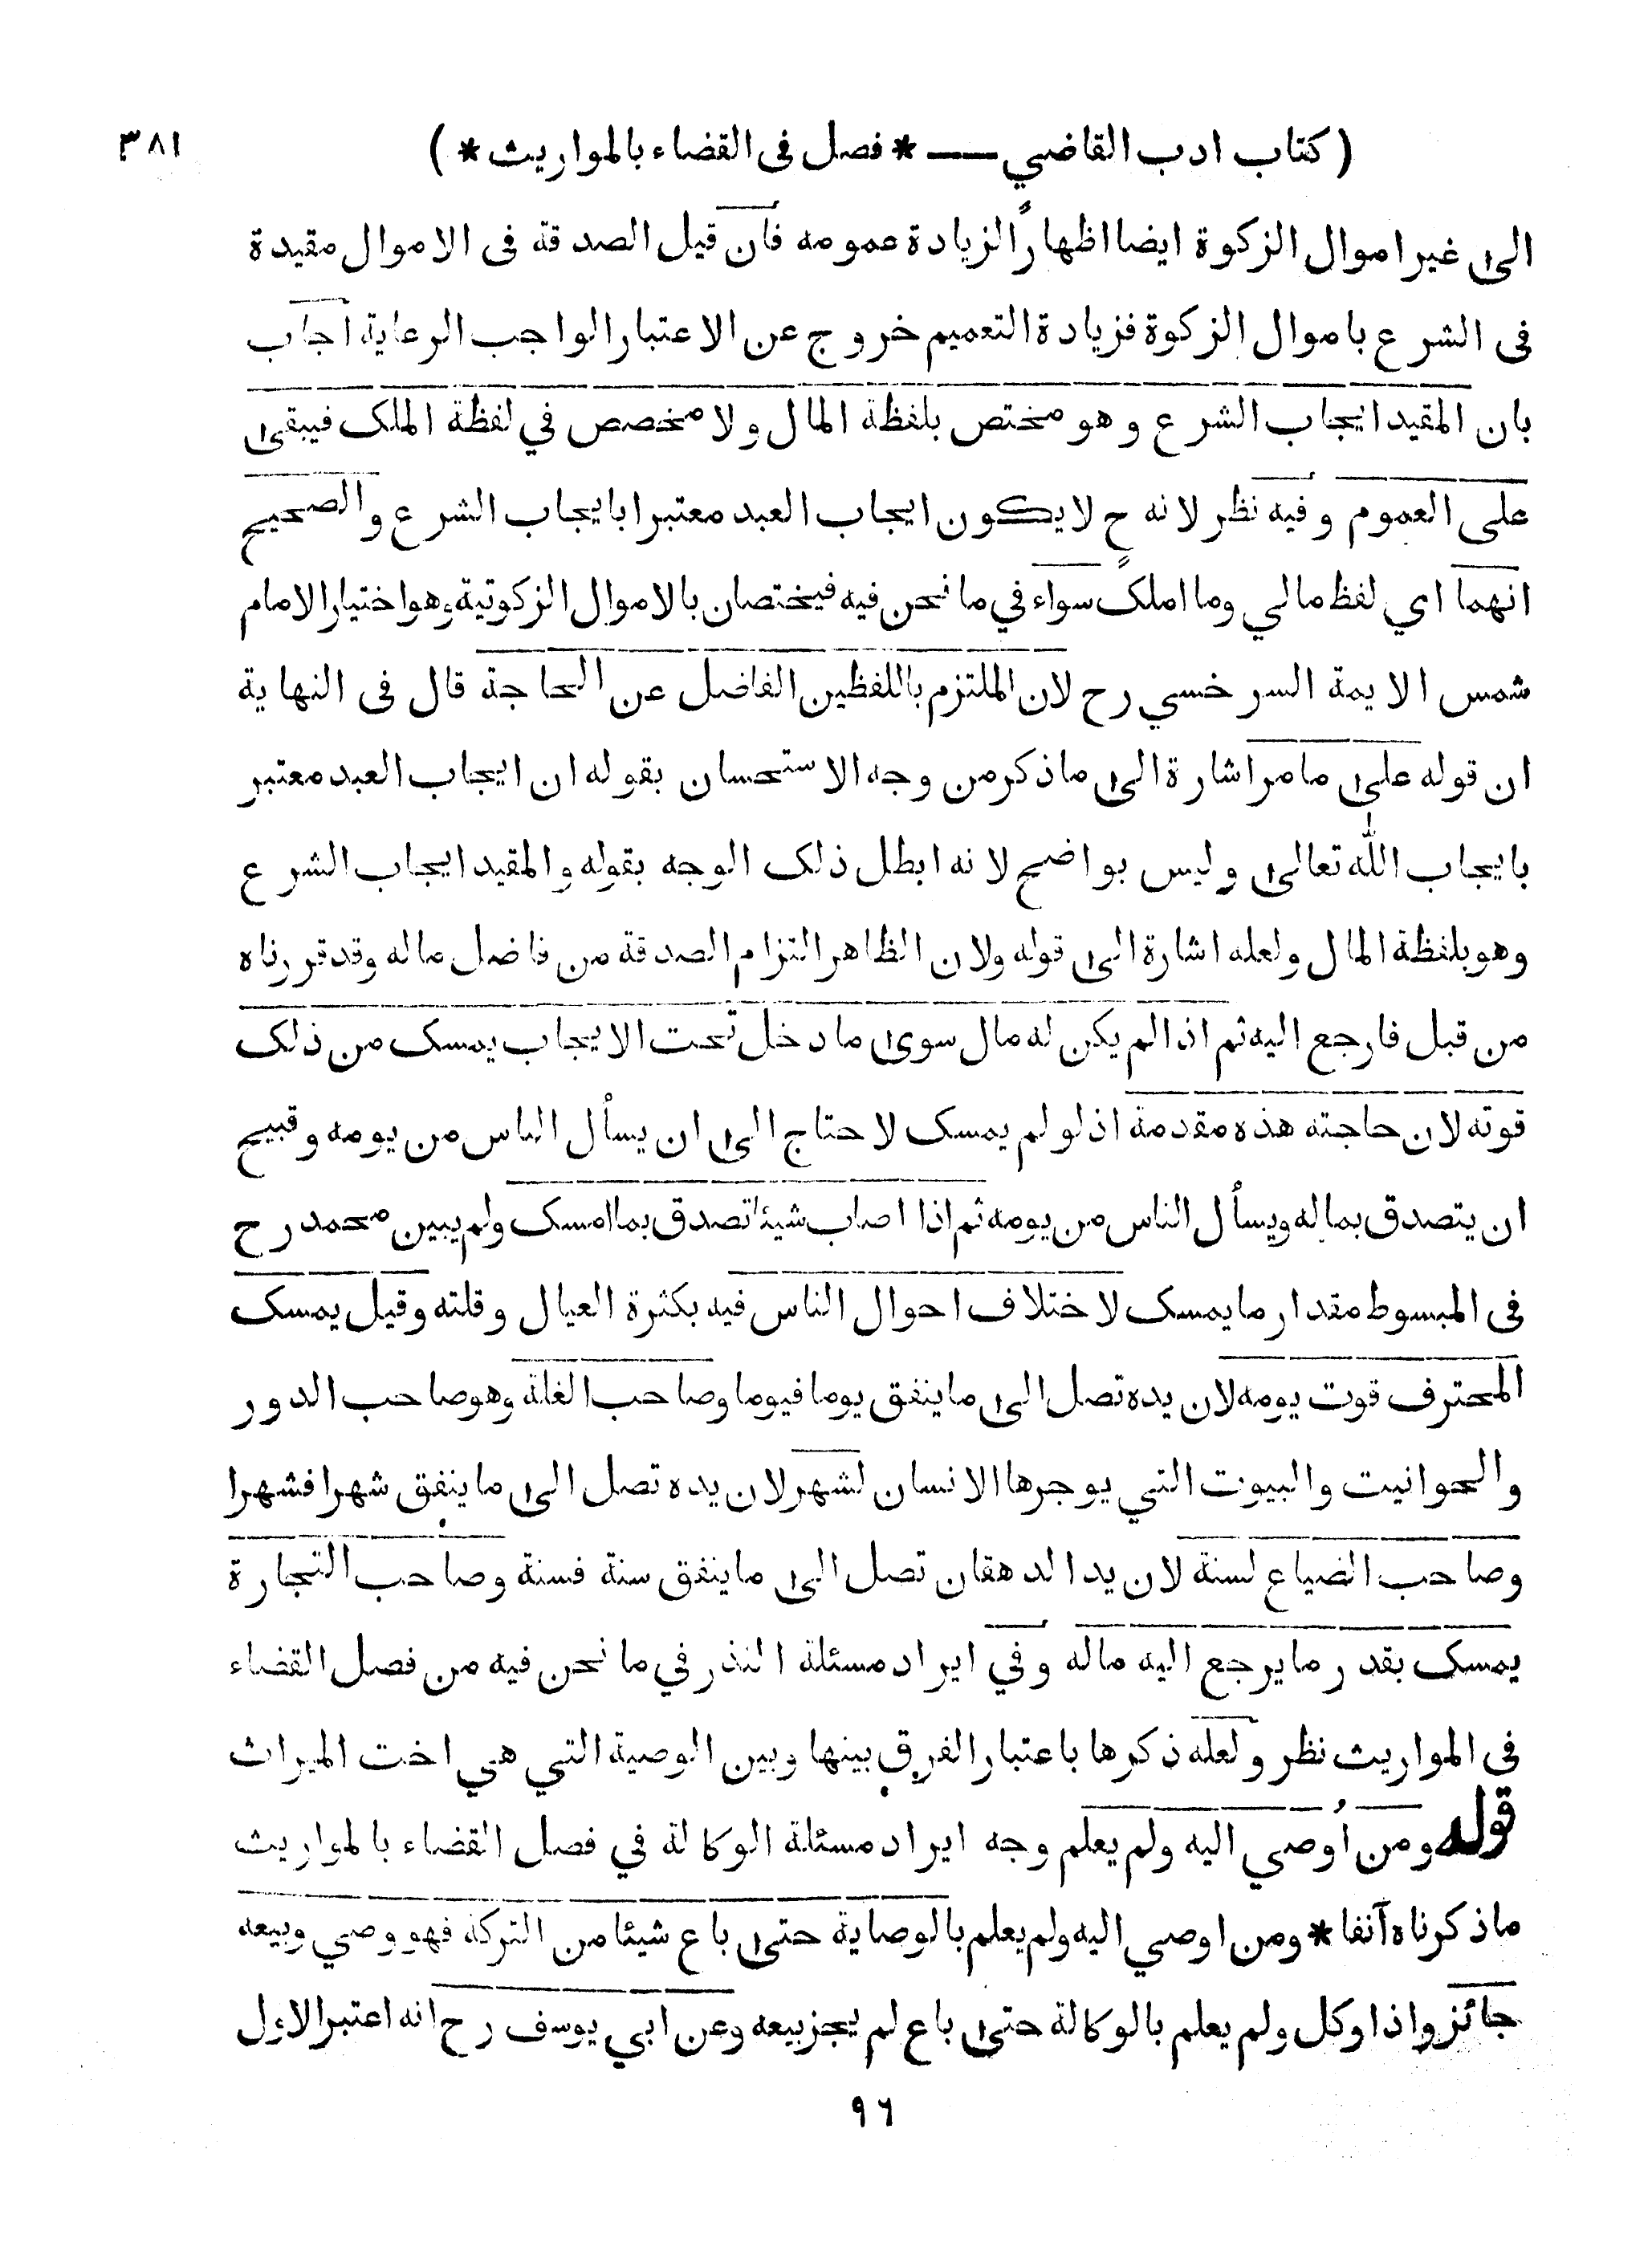 ( كتاب ادب القاضي — * فصل فى القضاء بالمواريث * ) ٣٨١
الى غير اموال الزكوة ايضا اظهارًا لزيادة عمومه فان قيل الصدقة فى الاموال مقيدة
فى الشرع باموال الزكوة فزيادة التعميم خروج عن الاعتبار الواجب الرعاية اجاب
بان المقيد ايجاب الشرع وهو مختص بلفظة المال ولا مخصص في لفظة الملك فيبقى
على العموم وفيه نظر لانه ح لا يكون ايجاب العبد معتبرا بايجاب الشرع والصحيح
انهما اي لفظ مالي وما املك سواء في ما نحن فيه فيختصان بالاموال الزكوتية وهو اختيار الامام
شمس الايمة السرخسي رح لان الملتزم باللفظين الفاضل عن الحاجة قال فى النهاية
ان قوله على ما مر اشارة الى ما ذكر من وجه الاستحسان بقوله ان ايجاب العبد معتبر
بايجاب الله تعالى وليس بواضح لانه ابطل ذلك الوجه بقوله والمقيد ايجاب الشرع
وهو بلفظة المال ولعله اشارة الى قوله ولان الظاهر التزام الصدقة من فاضل ماله وقد قررناه
من قبل فارجع اليه ثم اذا لم يكن له مال سوى ما دخل تحت الايجاب يمسك من ذلك
قوته لان حاجته هذه مقدمة اذ لو لم يمسك لاحتاج الى ان يسأل الناس من يومه وقبيح
ان يتصدق بماله ويسأل الناس من يومه ثم اذا اصاب شيئا تصدق بما امسك ولم يبين محمد رح
فى المبسوط مقدار ما يمسك لاختلاف احوال الناس فيه بكثرة العيال وقلته وقيل يمسك
المحترف قوت يومه لان يده تصل الى ما ينفق يوما فيوما وصاحب الغلة وهو صاحب الدور
والحوانيت والبيوت التي يوجرها الانسان لشهر لان يده تصل الى ما ينفق شهرا فشهرا
وصاحب الضياع لسنة لان يد الدهقان تصل الى ما ينفق سنة فسنة وصاحب التجارة
يمسك بقدر ما يرجع اليه ماله وفي ايراد مسئلة النذر في ما نحن فيه من فصل القضاء
فى المواريث نظر ولعله ذكرها باعتبار الفرق بينها وبين الوصية التي هي اخت الميراث
قوله ومن اُوصي اليه ولم يعلم وجه ايراد مسئلة الوكالة في فصل القضاء بالمواريث
ما ذكرناه آنفا * ومن اوصي اليه ولم يعلم بالوصاية حتى باع شيئا من التركة فهو وصي وبيعه
جائز واذا وكل ولم يعلم بالوكالة حتى باع لم يجز بيعه وعن ابي يوسف رح انه اعتبر الاول
٩٦